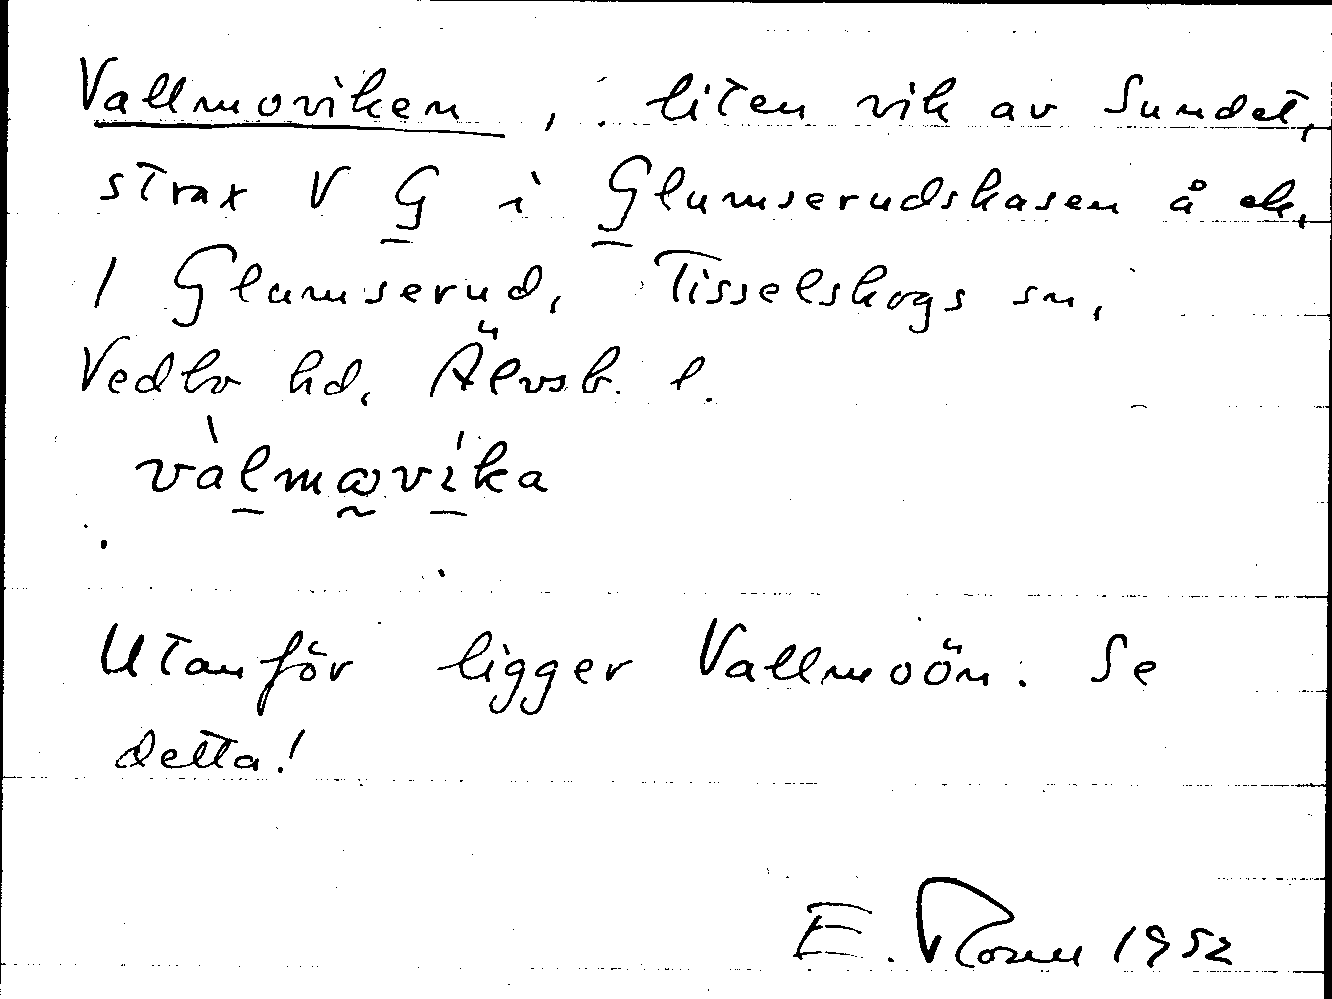 Vallmoviken, liten vik av Sundet,
strax V G i Glumserudskasen å ek.
1 Glumserud, Tisselskogs sn,
Vedbo hd, Älvsb. l.
vàlmωvíka
Utanför ligger Vallmoön. Se
detta!
E. 1952